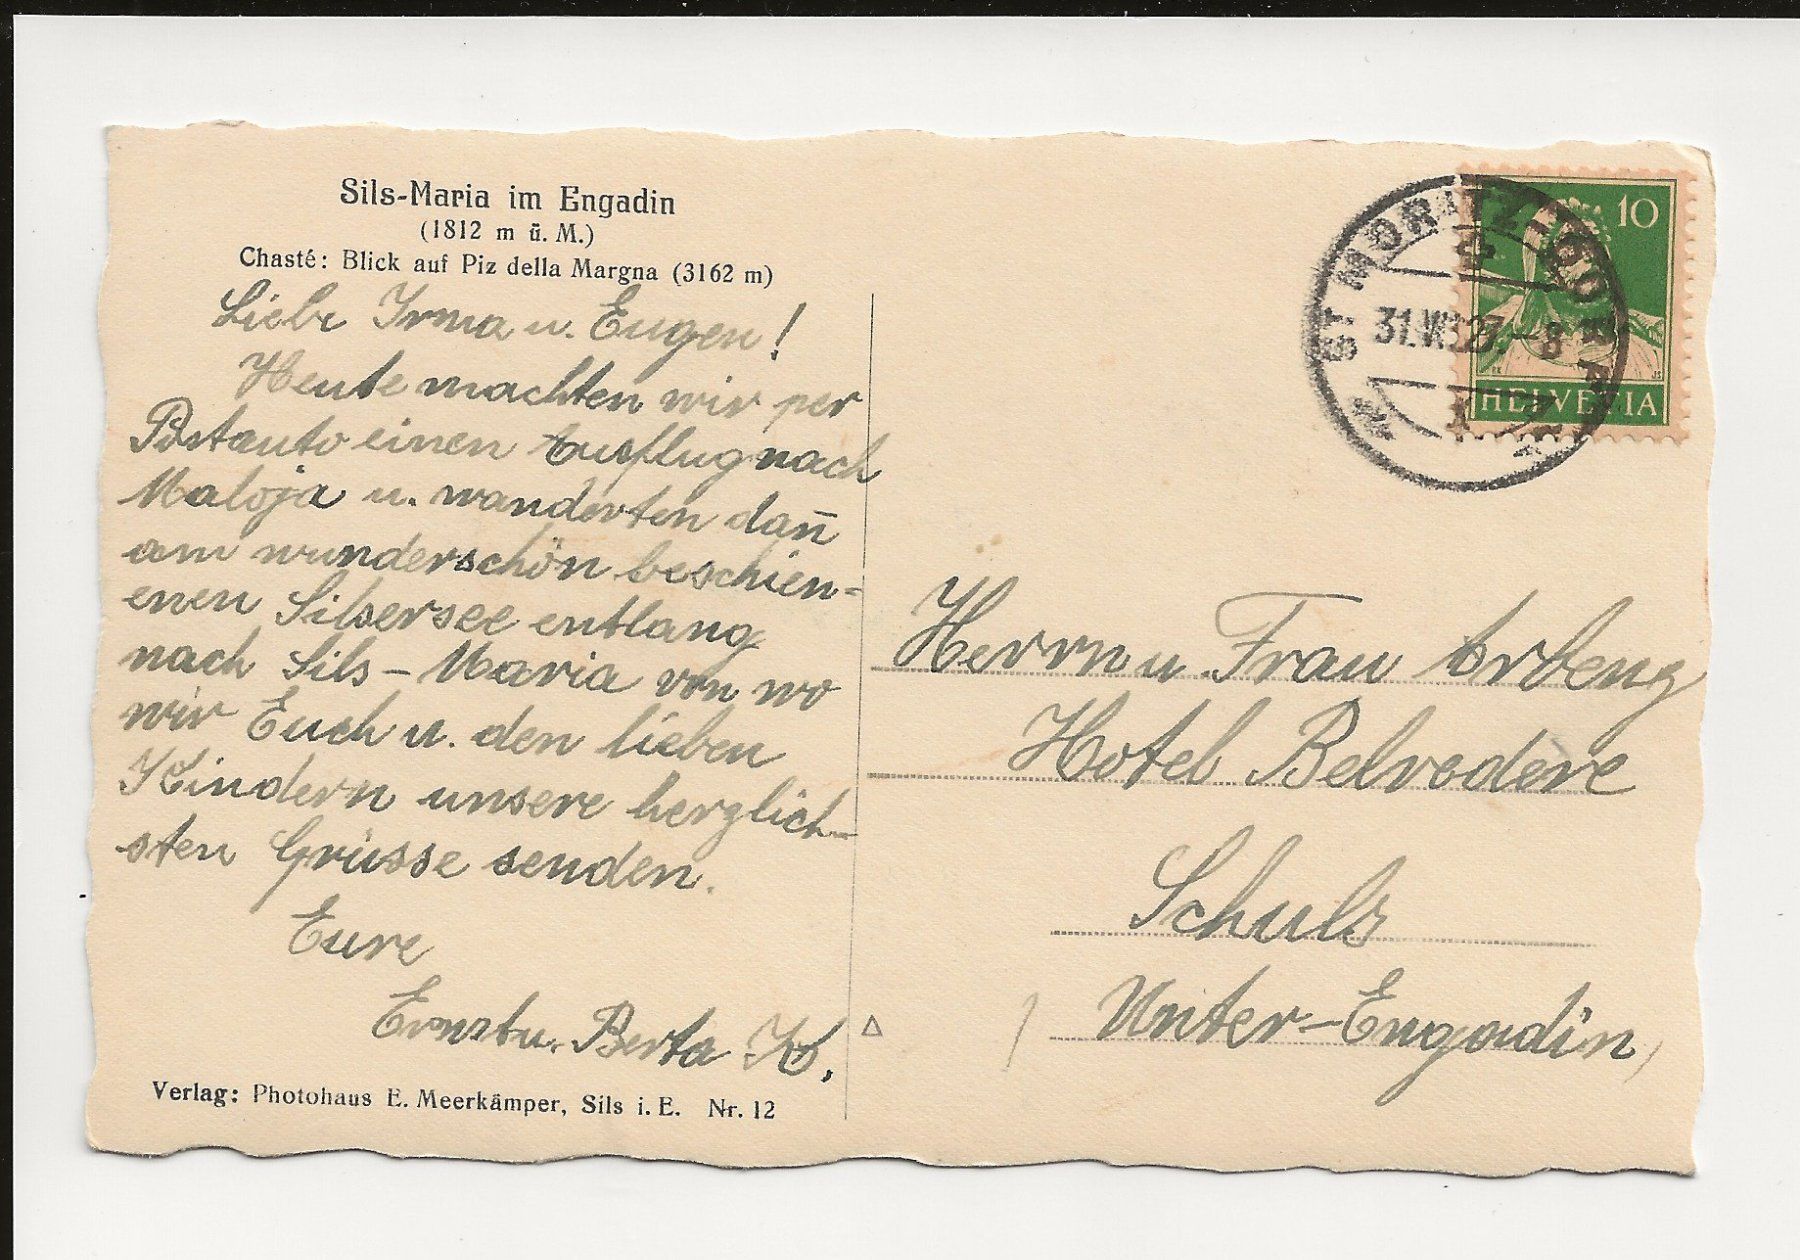 Sils-Maria im Engadin
(1812 m ü. M.)
Chasté: Blick auf Piz della Margna (3162 m)
Liebe Irma u. Eugen!
Heute machten wir per
Postauto einen Ausflug nach
Maloja u. wanderten dan̄
am wunderschön beschien-
enen Silsersee entlang
nach Sils-Maria von wo
wir Euch u. den lieben
Kindern unsere herzlich-
sten Grüsse senden.
Eure
Ernst u. Berta K.
Verlag: Photohaus E. Meerkämper, Sils i. E. Nr. 12
ST. MORITZ-DORF
31.VIII.27.-8
10
HELVETIA
Herrn u. Frau Arbenz
Hotel Belvedère
Schuls
Unter-Engadin